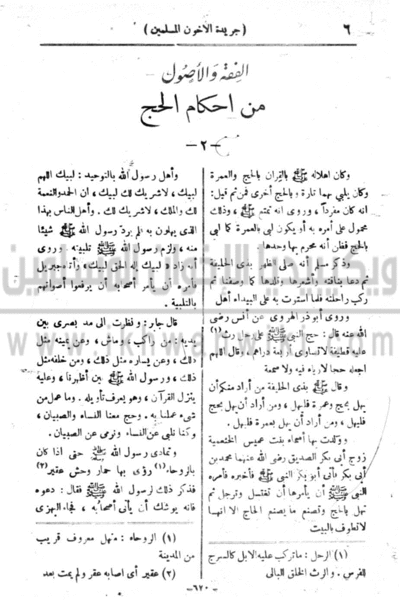 ٦
( جريدة الاخون المسلمين )
الفقه والأصول
من احكام الحج
— ٢ —
وكان اهلاله ﷺ بالقران بالحج والعمرة
وكان يلبي بهما تارة وبالحج أخرى فمن ثم قيل :
انه كان مفرداً ، وروى انه تمتع ، وذلك
محمول على أمره به أو يكون لبى بالعمرة كما لبى
بالحج فظن أنه محرم بها وحدها .
وذكر مسلم أنه صلى الظهر بذى الحليفة
ثم دعا بناقته وأشعرها وقلدها كما وصفنا ثم
ركب راحلته فلما استوت به على البيداء أهل
وروى أبو ذر الهروى عن أنس رضى
الله عنه قال : حج النبى ﷺ على رحل رث (١)
عليه قطيفة لا تساوى أربعة دراهم . وقال اللهم
اجعله حجا لا رياء فيه ولا سمعة
وقال ﷺ بذى الحليفة من أراد منكم أن
يهل بحج وعمرة فليهل ، ومن أراد أن يهل بحج
فليهل ، ومن أراد أن يهل بعمرة فليهل .
وولدت بها أسماء بنت عميس الخثعمية
زوج أبى بكر الصديق رضى الله عنهما محمد بن
أبى بكر فأتى أبو بكر النبى ﷺ فأخبره فأمره
النبى ﷺ أن يأمرها أن تغتسل وترجل ثم
تهل بالحج وتصنع ما يصنع الحاج الا انها
لا تطوف بالبيت
(١) الرحل : ما تركب عليه الابل كالسرج
للفرس . والرث الخلق البالى
وأهل رسول الله بالتوحيد : لبيك اللهم
لبيك ، لبيك لا شريك لك لبيك ، ان الحمد والنعمة
لك والملك ، لا شريك لك . وأهل الناس بهذا
الذى يهلون به لم يرد رسول الله ﷺ شيئا
منه ، ولزم رسول الله ﷺ تلبيته . وروى
أنه زاد « لبيك إله الحق لبيك » وأتاه جبريل
فأمره أن يأمر أصحابه أن يرفعوا أصواتهم
بالتلبية .
قال جابر : ونظرت الى مد بصرى بين
يديه : من راكب ، وماش ، وعن يمينه مثل
ذلك ، وعن يساره مثل ذلك ، ومن خلفه مثل
ذلك ، ورسول الله ﷺ بين أظهرنا ، وعليه
ينزل القرآن ، وهو يعرف تأويله . وما عمل من
شىء عملنا به . وحج معنا النساء والصبيان ،
وكنا نلبى عن النساء ونرمى عن الصبيان .
وتمادى رسول الله ﷺ حتى اذا كان
بالروحاء (١) رؤى بها حمار وحش عقير (٢)
فذكر ذلك لرسول الله ﷺ فقال : دعوه
فانه يوشك أن يأتى أصحابه ، فجاء البهزى
(١) الروحاء : منهل معروف قريب
من المدينة
(٢) عقير أى أصابه عقر ولم يمت بعد
— ٦٢٠ —